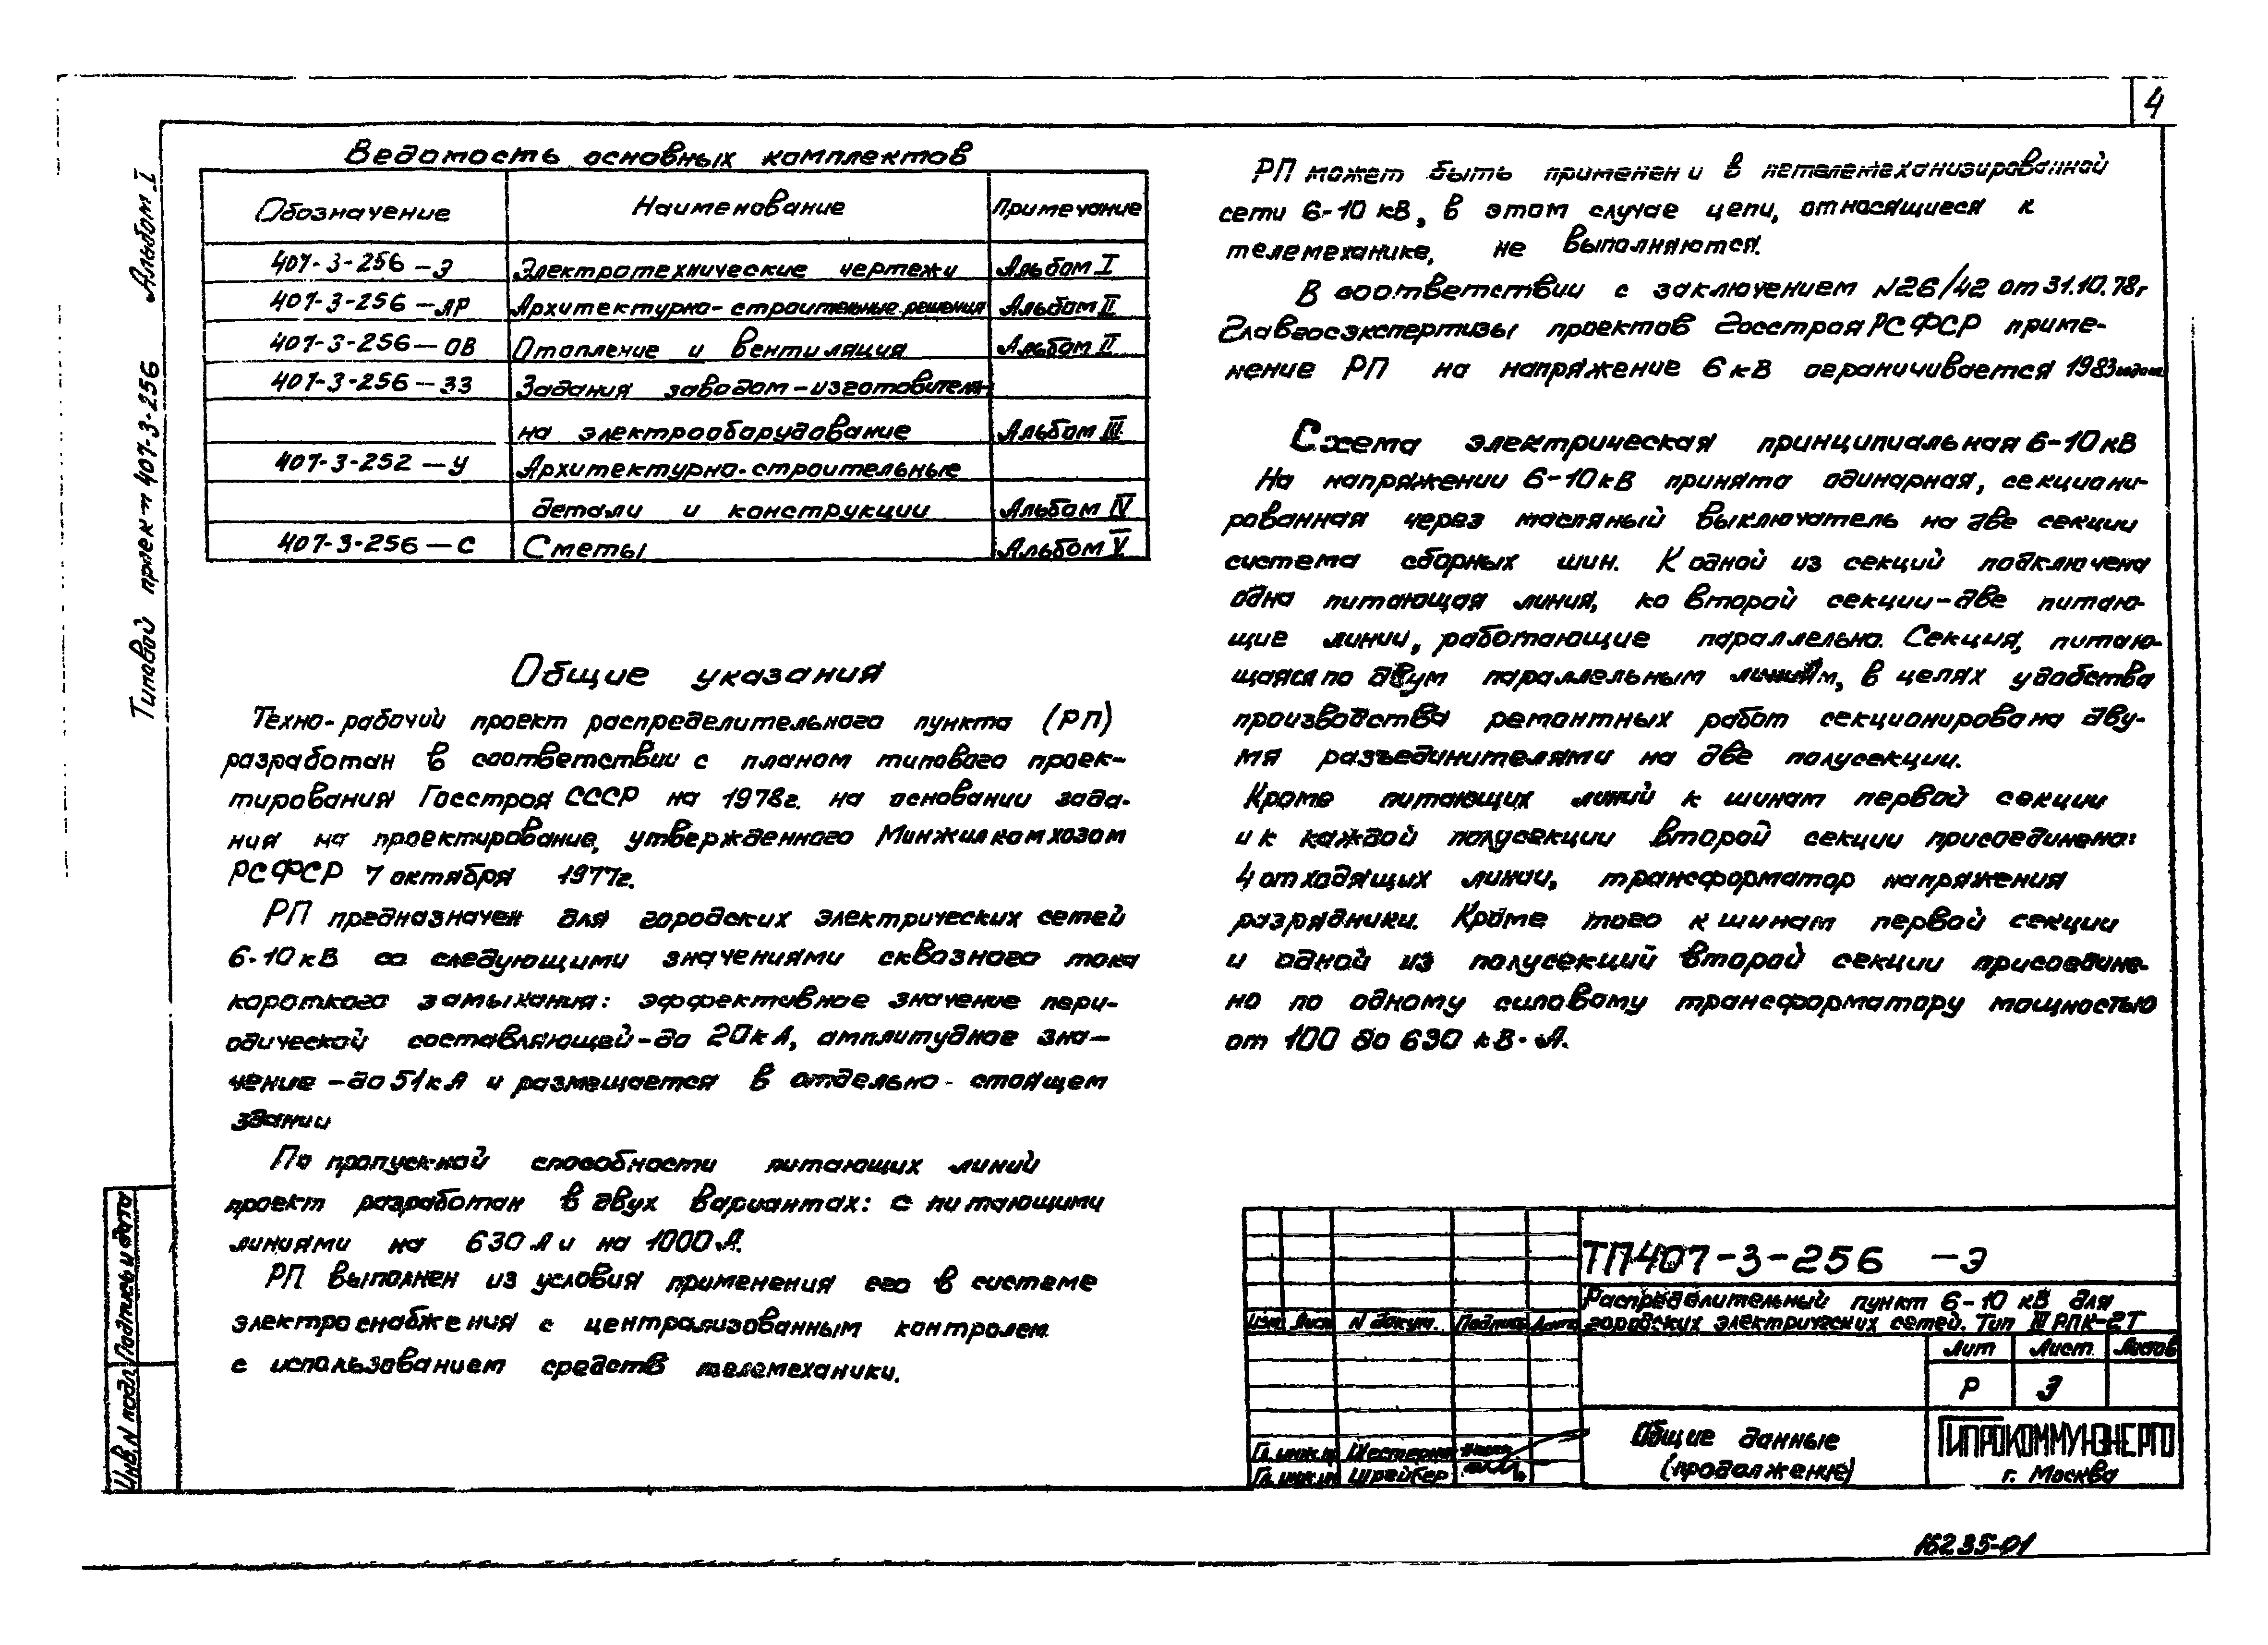 4
Альбом I
Типовой проект 407-3-256
Ведомость основных комплектов
Обозначение Наименование Примечание
407-3-256-Э Электротехнические чертежи Альбом I
407-3-256-АР Архитектурно-строительные решения Альбом II
407-3-256-ОВ Отопление и вентиляция Альбом II
407-3-256-ЗЗ Задания заводам-изготовителям
на электрооборудование Альбом III
407-3-252-У Архитектурно-строительные
детали и конструкции Альбом IV
407-3-256-С Сметы Альбом V
Общие указания
Техно-рабочий проект распределительного пункта (РП)
разработан в соответствии с планом типового проек-
тирования Госстроя СССР на 1978г. на основании зада-
ния на проектирование, утвержденного Минжилкомхозом
РСФСР 7 октября 1977г.
РП предназначен для городских электрических сетей
6-10кВ со следующими значениями сквозного тока
короткого замыкания: эффективное значение пери-
одической составляющей-до 20кА, амплитудное зна-
чение-до 51кА и размещается в отдельно-стоящем
здании
По пропускной способности питающих линий
проект разработан в двух вариантах: с питающими
линиями на 630А и на 1000А.
РП выполнен из условия применения его в системе
электроснабжения с централизованным контролем
с использованием средств телемеханики.
РП может быть применен и в нетелемеханизированной
сети 6-10 кВ, в этом случае цепи, относящиеся к
телемеханике, не выполняются.
В соответствии с заключением N26/42 от 31.10.78г
Главгосэкспертизы проектов Госстроя РСФСР приме-
нение РП на напряжение 6кВ ограничивается 1983годом
Схема электрическая принципиальная 6-10кВ
На напряжении 6-10кВ принята одинарная, секциони-
рованная через масляный выключатель на две секции
система сборных шин. К одной из секций подключена
одна питающая линия, ко второй секции-две питаю-
щие линии, работающие параллельно. Секция, питаю-
щаяся по двум параллельным линиям, в целях удобства
производства ремонтных работ секционирована дву-
мя разъединителями на две полусекции.
Кроме питающих линий к шинам первой секции
и к каждой полусекции второй секции присоединено:
4 отходящих линии, трансформатор напряжения
разрядники. Кроме того к шинам первой секции
и одной из полусекций второй секции присоедине-
но по одному силовому трансформатору мощностью
от 100 до 630 кВ·А.
ТП407-3-256 -Э
Распределительный пункт 6-10 кВ для
городских электрических сетей. Тип III РПК-2Т
Изм Лист N докум. Подпись Дата
Лит Лист Листов
Р 3
Общие данные
(продолжение)
ГИПРОКОММУНЭНЕРГО
г. Москва
Гл.инж.ин Шестерни
Гл.инж.ин Шрейбер
Подпись и дата
Инв.N подл
16235-01